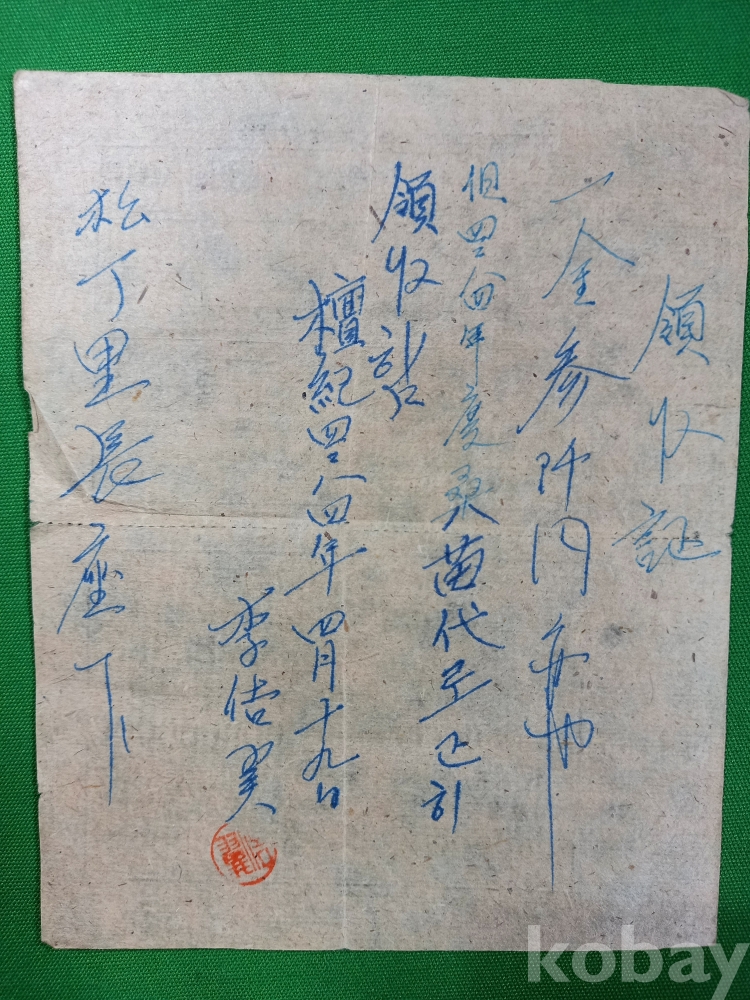 領收証
一金參阡円也
但四二八四年度桑苗代로 正히
領收함
檀紀四二八四年四月十九日
李佶翼
松丁里長座下
kobay